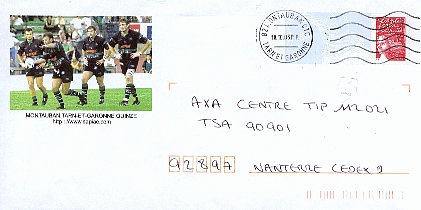 82 MONTAUBAN CTC
TARN-ET-GARONNE
AXA CENTRE TIP M2021
TSA 90901
92897 NANTERRE CEDEX 9
MONTAUBAN TARN-ET-GARONNE QUINZE
http://www.sapiac.com